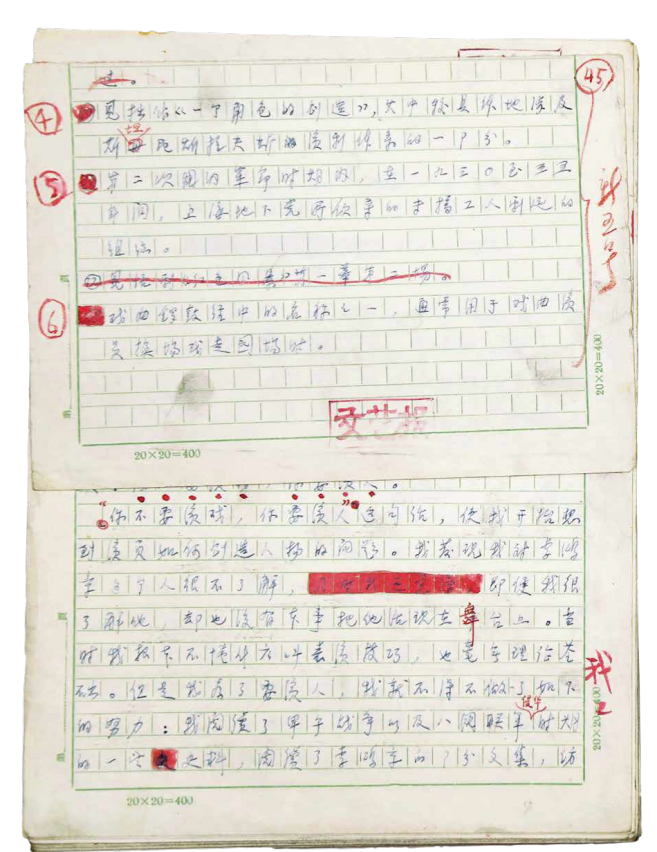 ④ 见拙作《一个角色的创造》,其中较具体地涉及
坦
斯 尼斯拉夫斯的演剧体系的一部分。
⑤ 第二次国内革命时期内,在一九三〇至三五
年间,上海地下党所领导的 工人剧运的
组织。
⑥ 戏曲锣鼓经中的名称之一,通常用于戏曲演
员换场或走圆场时。
45
新五号
20×20=400
20×20=400
文艺报
“你不要演戏,你要演人”这句话,使我开始想
到演员如何创造人物的问题。我发现我对李鸿
章这个人很不了解, 即使我很
了解他,却也没有本事把他活现在舞台上。当
时我根本不懂什么叫表演技巧,也毫无理论基
础。但是我为了要演人,我就不得不做了如下
侵华
的努力:我阅读了甲午战争以及八国联军时期
的一些 史料,阅读了李鸿章的部分文集,访
20×20=400
20×20=400